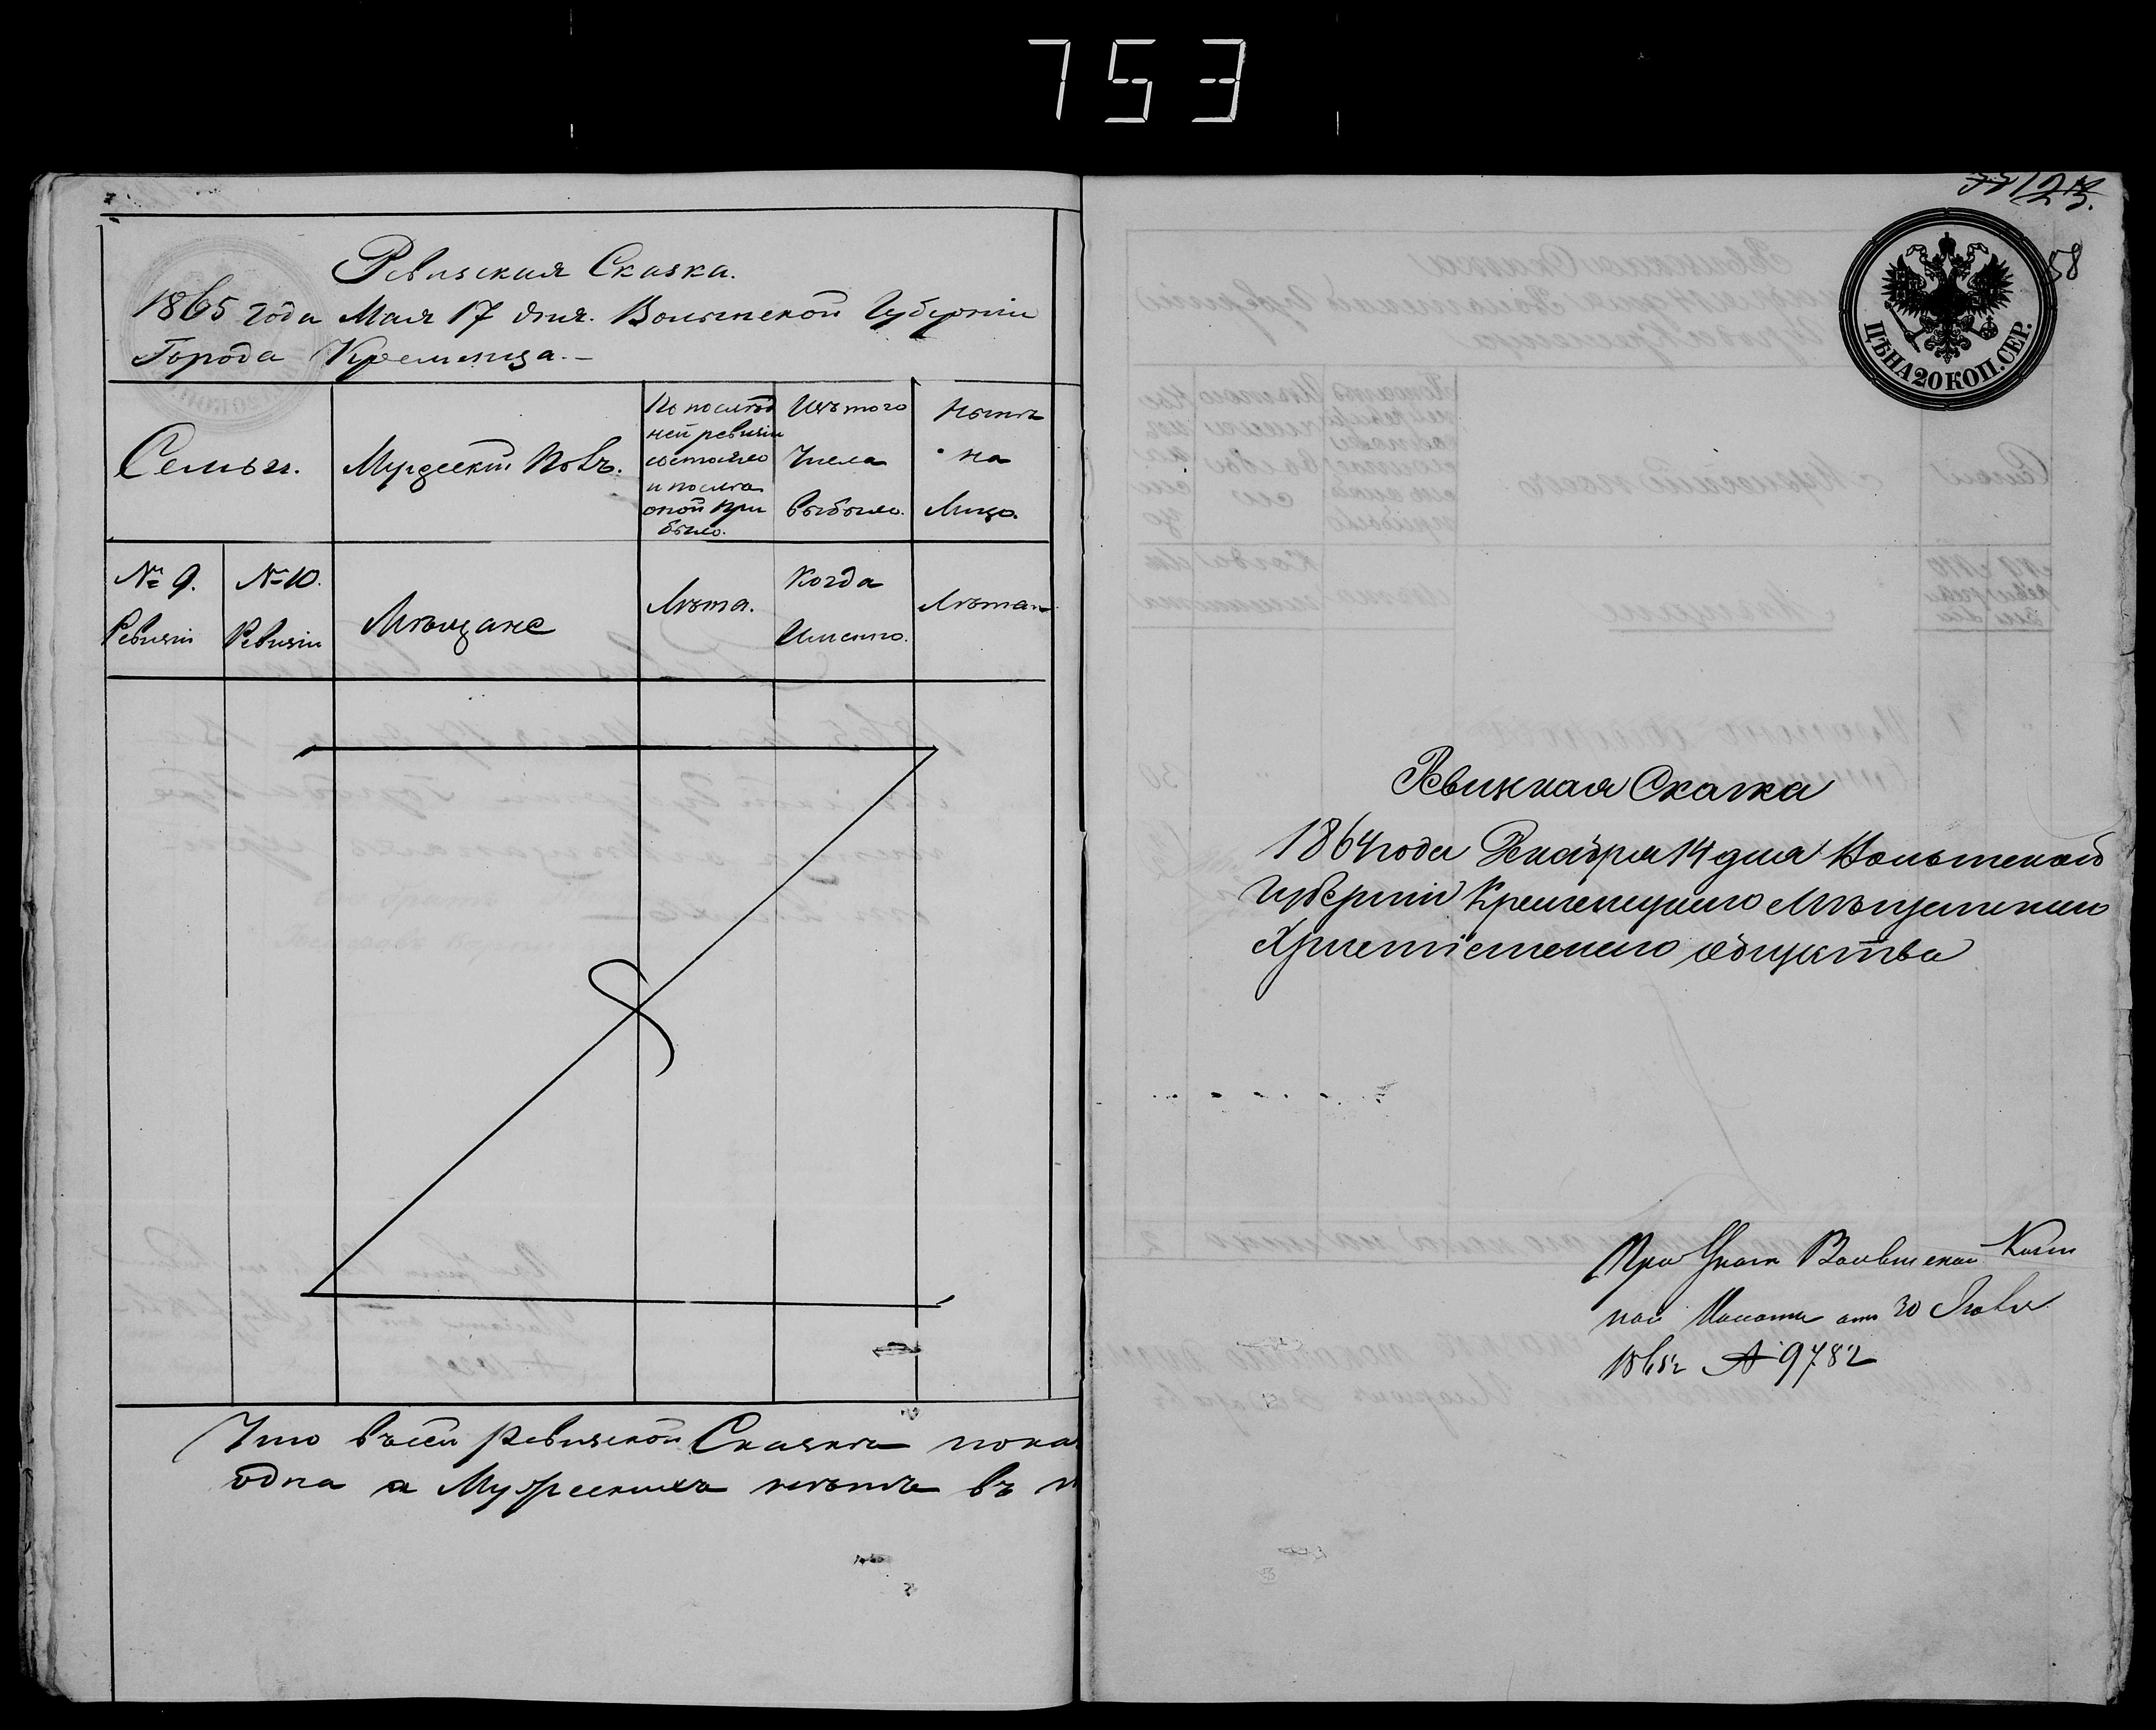 753
Ревизская Сказка.
1865 года Мая 17 дня. Волынской Губерніи
Города Кременца.
Семьи.
Мужескій Полъ.
По послѣд
ней ревизіи
состояло
и послѣ
оной при
было.
Изъ того
Числа
выбыло.
Нынѣ
на
Лицо.
№ 9.
Ревизіи
№ 10.
Ревизіи
Мѣщане
Лѣта.
Когда
Именно.
Лѣта.
Что въ сей ревизской Сказкѣ пока
одна а Мужескихъ нѣтъ въ
123.
58
ЦѢНА 20 КОП. СЕР.
Ревизкая Сказка
1864 года Декабря 14 дня Волынской
Губерніи Кременецкаго Мѣщанскаго
Христіанскаго общества
При Указѣ Волынской Казен
ной Палаты отъ 30 Іюля
1865 г № 9782